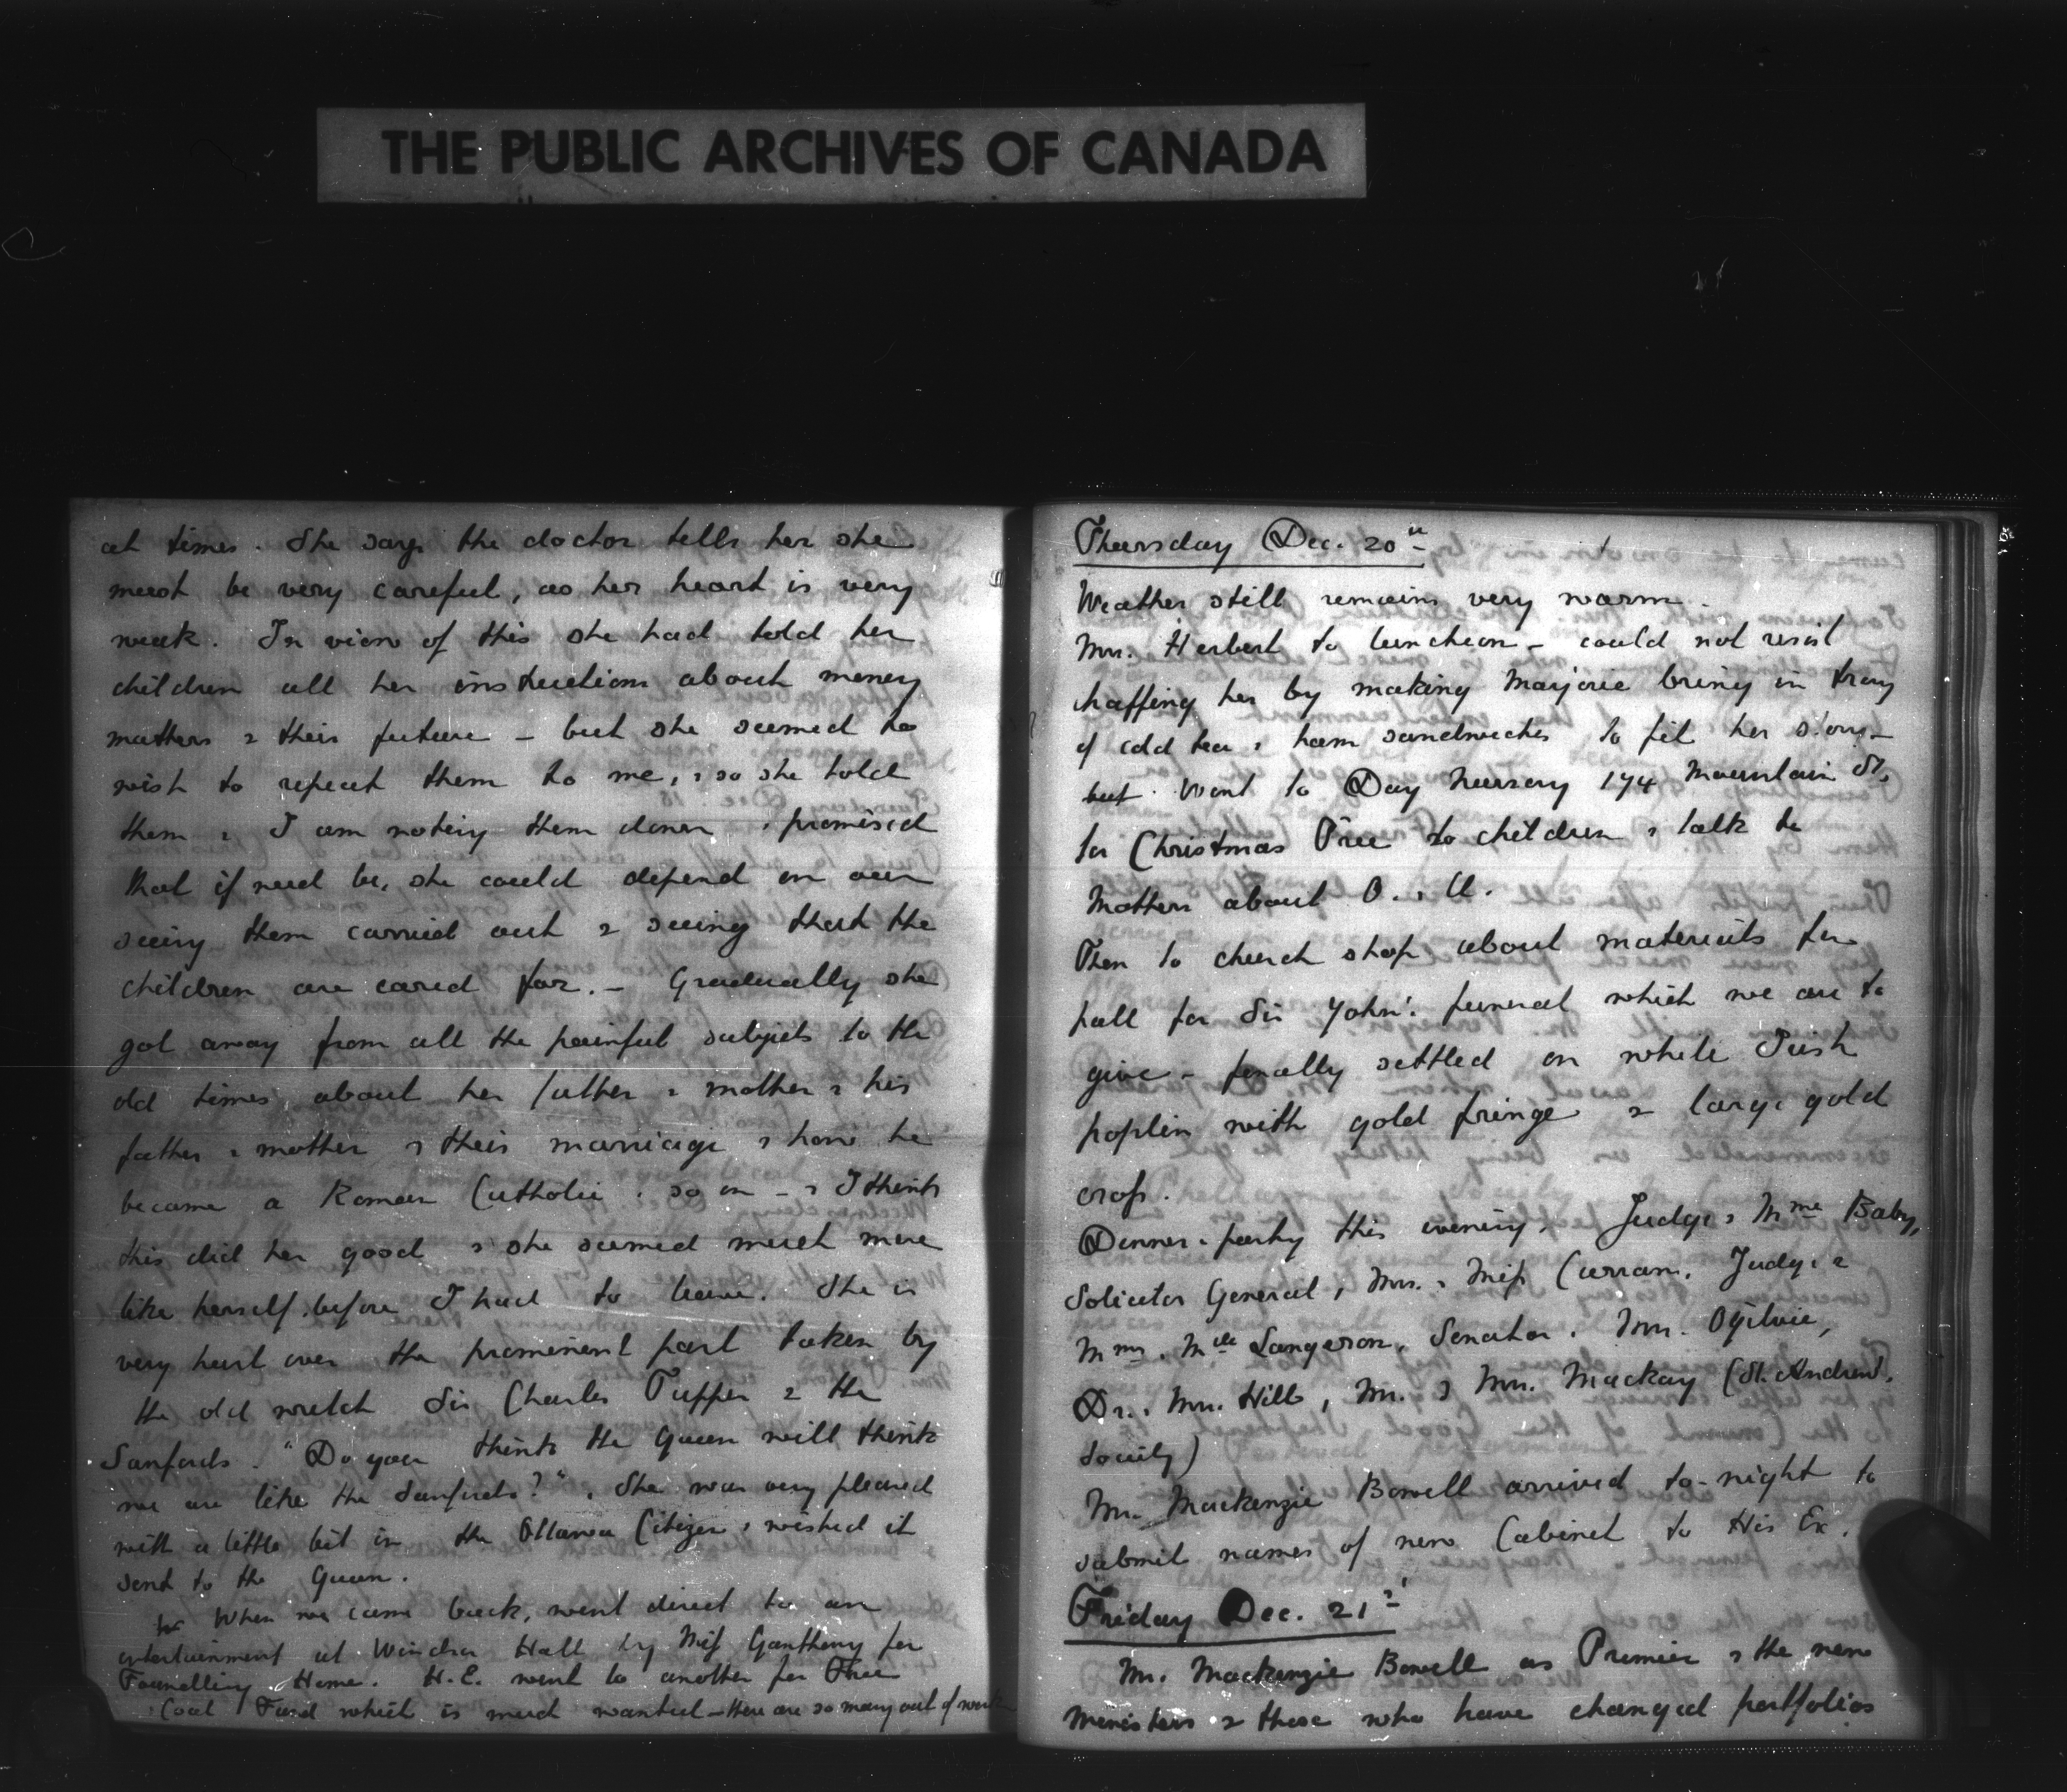 THE PUBLIC ARCHIVES OF CANADA
at times. She says the doctor tells her she
must be very careful, as her heart is very
weak. In view of this she had told her
children all her instructions about money
matters & their future – but she seemed to
wish to repeat them to me, & so she told
them & I am noting them down & promised
that if need be, she could depend on our
seeing them carried out & seeing that the
children are cared for. – Gradually she
got away from all the painful subjects to the
old times about her father & mother & his
father & mother & their marriage & how he
became a Roman Catholic & so on – & I think
this did her good & she seemed much more
like herself before I had to leave. She is
very hurt over the prominent part taken by
the old wretch Sir Charles Tupper & the
Sanfords. "Do you think the Queen will think
we are like the Sanfords?" She was very pleased
with a little bit in the Ottawa Citizen & wished it
sent to the Queen.
When we came back, went direct to an
entertainment at Windsor Hall by Miss Ganthony for
Foundling Home. H.E. went to another for Free
Coal Fund which is much wanted – there are so many out of work
Thursday Dec. 20th
Weather still remains very warm.
Mrs. Herbert to luncheon – could not resist
chaffing her by making Marjorie bring in tray
of cold tea & ham sandwiches to fit her story –
but. Went to Day Nursery 174 Mountain St.
for Christmas Tree to children & talk to
Mothers about O. & U.
Then to church shop about materials for
pall for Sir John's funeral which we are to
give – finally settled on white Irish
poplin with gold fringe & large gold
cross.
Dinner-party this evening. Judge & Mme Baby,
Solicitor General, Mrs. & Miss Curran, Judge &
Mme. Mlle Langeron, Senator & Mrs. Ogilvie,
Dr. & Mrs. Hills, Mr. & Mrs. Mackay (St. Andrew's
Society)
Mr. Mackenzie Bowell arrived to-night to
submit names of new Cabinet to His Ex.
Friday Dec. 21st
Mr. Mackenzie Bowell as Premier & the new
Ministers & those who have changed portfolios